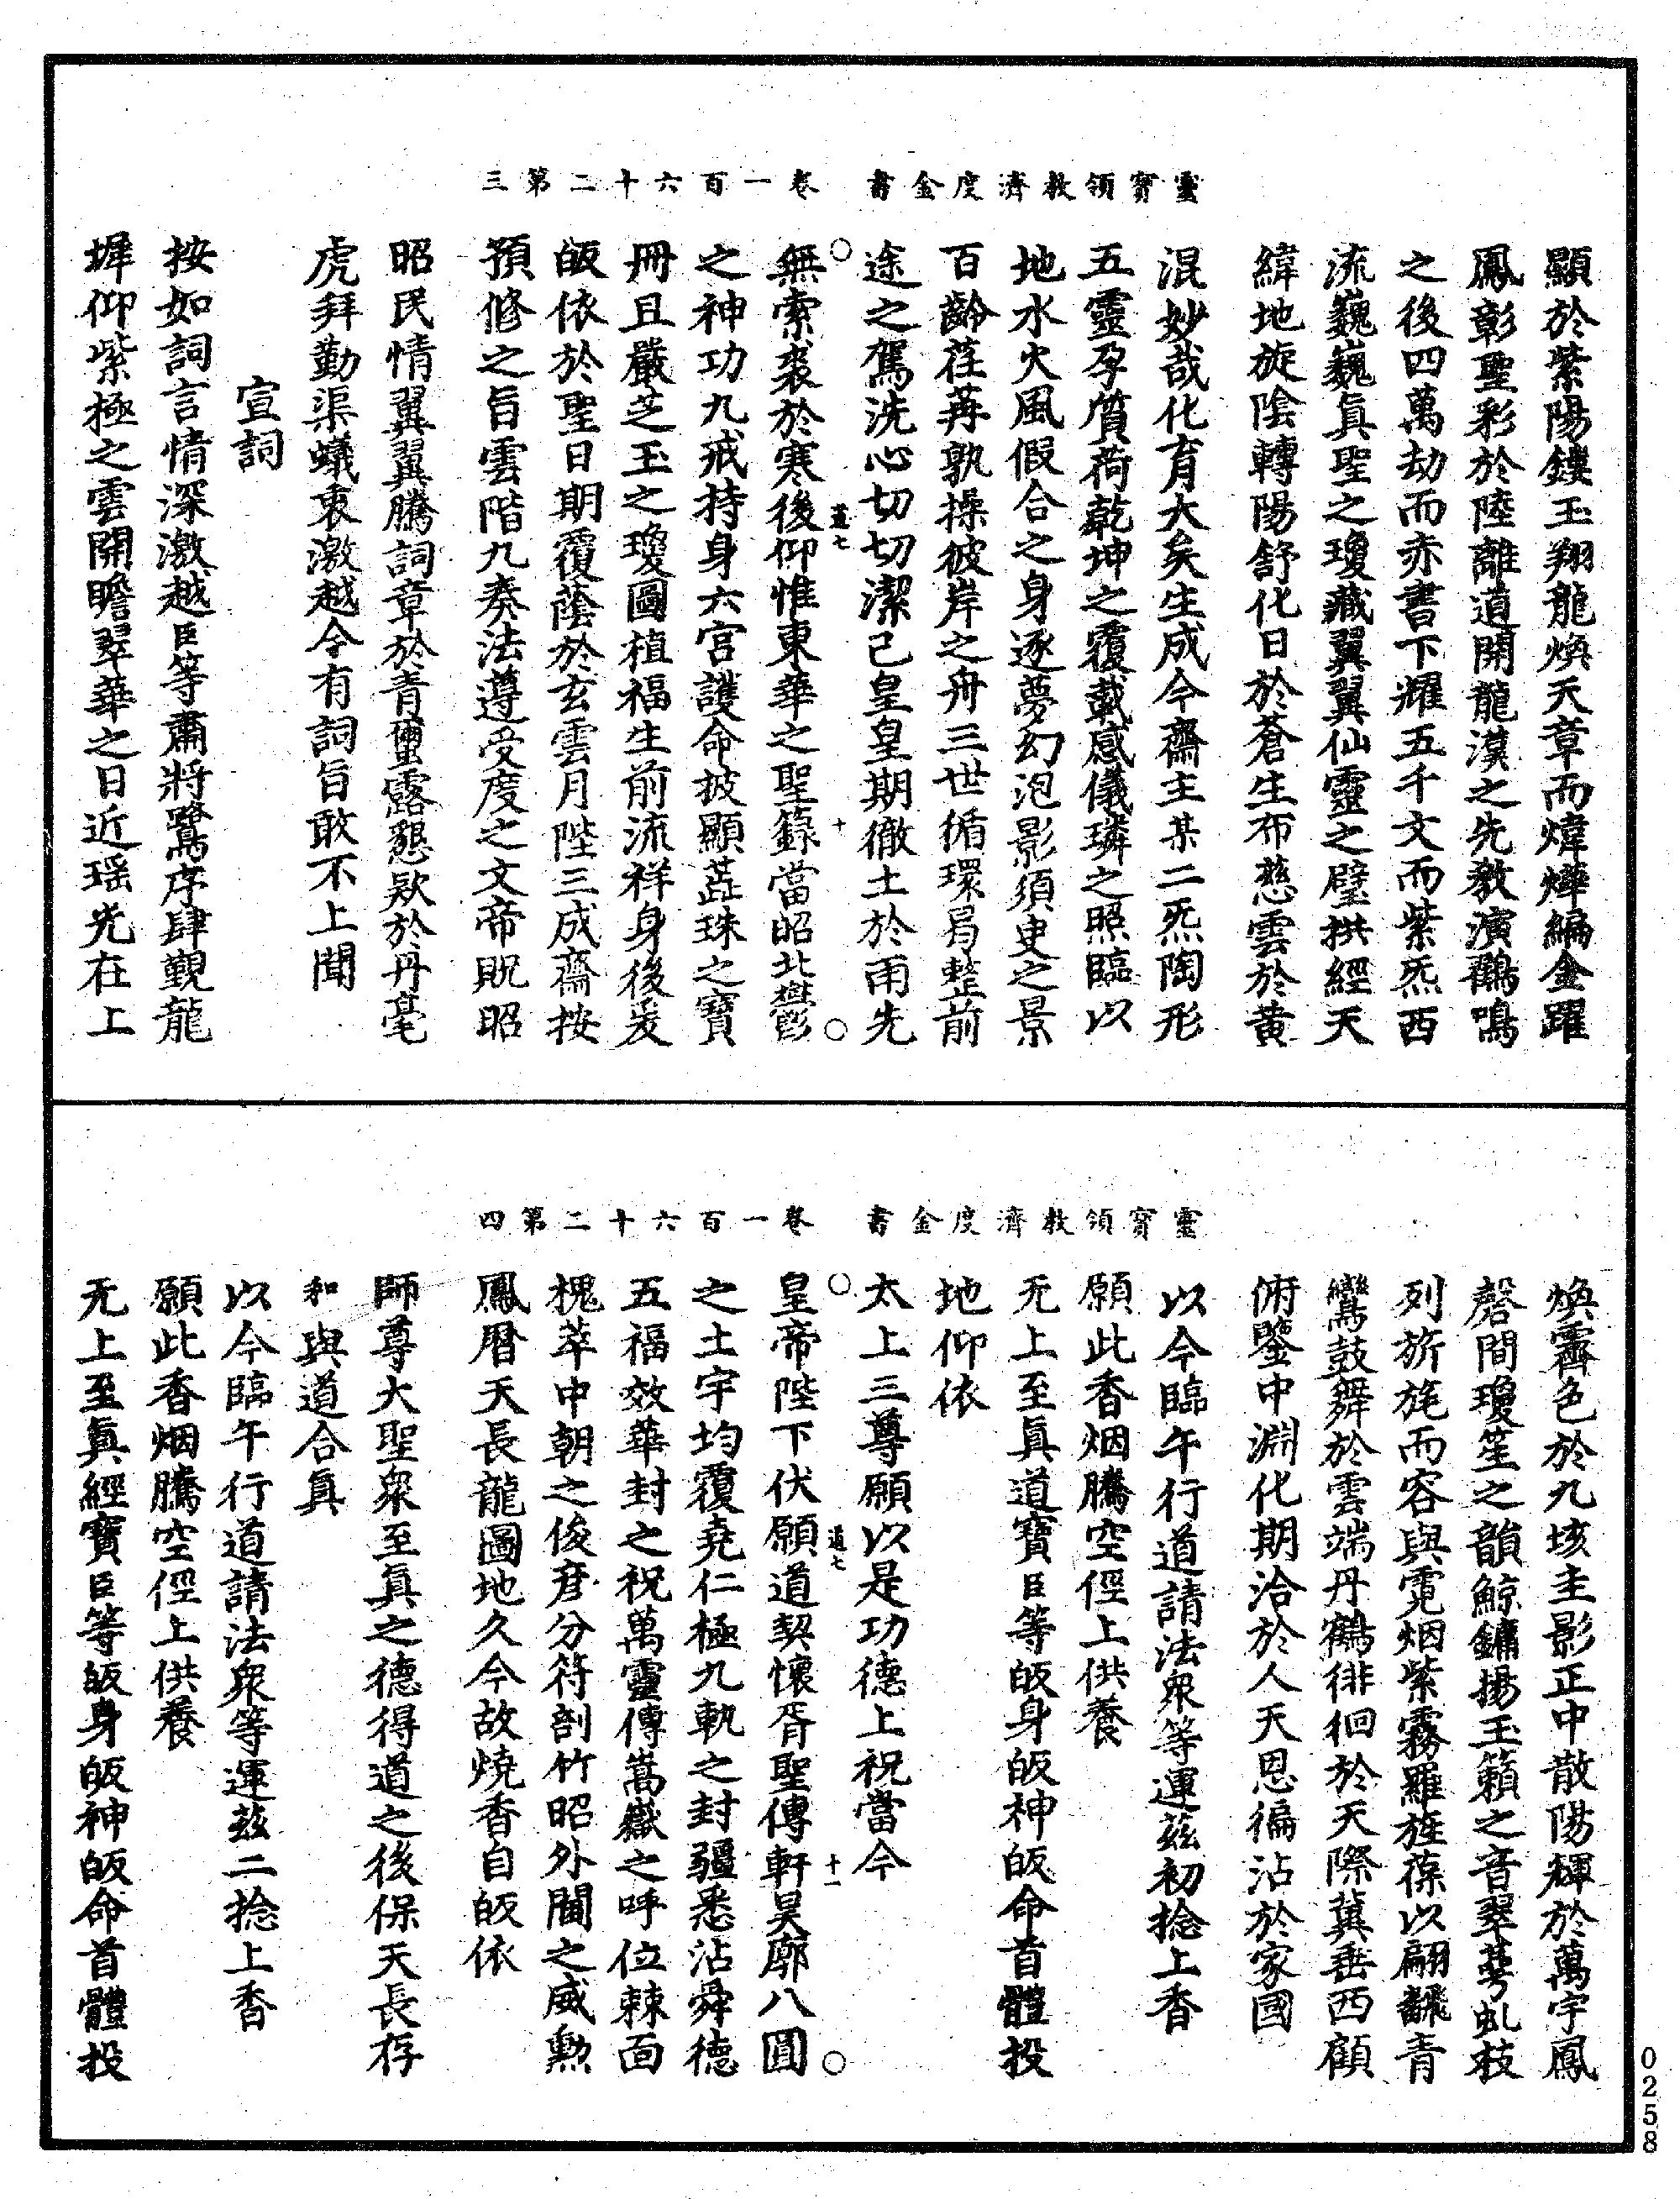 靈寶領教濟度金書　卷一百六十二第三
顯於紫陽鏤玉翔龍煥天章而煒燁編金躍
鳳彰聖彩於陸離道開龍漢之先教演鸝鳴
之後四萬劫而赤書下耀五千文而紫炁西
流巍巍真聖之瓊藏翼翼仙靈之璧拱經天
緯地旋陰轉陽舒化日於蒼生布慈雲於黃
混妙哉化育大矣生成今齋主某二炁陶形
五靈孕質荷乾坤之覆載感儀璘之照臨以
地水火風假合之身逐夢幻泡影須臾之景
百齡荏苒孰操彼岸之舟三世循環曷整前
途之駕洗心切切潔己皇皇期徹土於雨先
無索裘於寒後仰惟東華之聖籙當昭北酆
道七
十
之神功九戒持身六宮護命披顯蕋珠之寶
冊且嚴芝玉之瓊圖植福生前流祥身後爰
皈依於聖日期覆蔭於玄雲月陛三成齋按
預修之旨雲階九奏法遵受度之文帝貺昭
昭民情翼翼騰詞章於青蠒露懇欵於丹毫
虎拜勤渠蟻衷激越今有詞旨敢不上聞
宣詞
按如詞言情深激越臣等肅將鷺序肆覲龍
墀仰紫極之雲開瞻翠華之日近瑶光在上
靈寶領教濟度金書　卷一百六十二第四
煥霽色於九垓圭影正中散陽輝於萬宇鳳
磬間瓊笙之韻鯨鏞揚玉籟之音翠蕚虬枝
列旂旄而容與霓烟紫霧羅旌葆以翩飜青
鸞鼓舞於雲端丹鶴徘徊於天際冀垂西顧
俯鑒中淵化期洽於人天恩徧沾於家國
以今臨午行道請法衆等運茲初捻上香
願此香烟騰空徑上供養
无上至眞道寶臣等皈身皈神皈命首體投
地仰依
太上三尊願以是功德上祝當今
皇帝陛下伏願道契懷胥聖傳軒昊廓八圓
道七
十一
之土宇均覆堯仁極九軌之封疆悉沾舜德
五福效華封之祝萬靈傳嵩嶽之呼位棘面
槐萃中朝之俊彥分符剖竹昭外閫之威勲
鳳曆天長龍圖地久今故燒香自皈依
師尊大聖衆至眞之德得道之後保天長存
和與道合眞
以今臨午行道請法衆等運兹二捻上香
願此香烟騰空徑上供養
无上至眞經寶臣等皈身皈神皈命首體投
0258